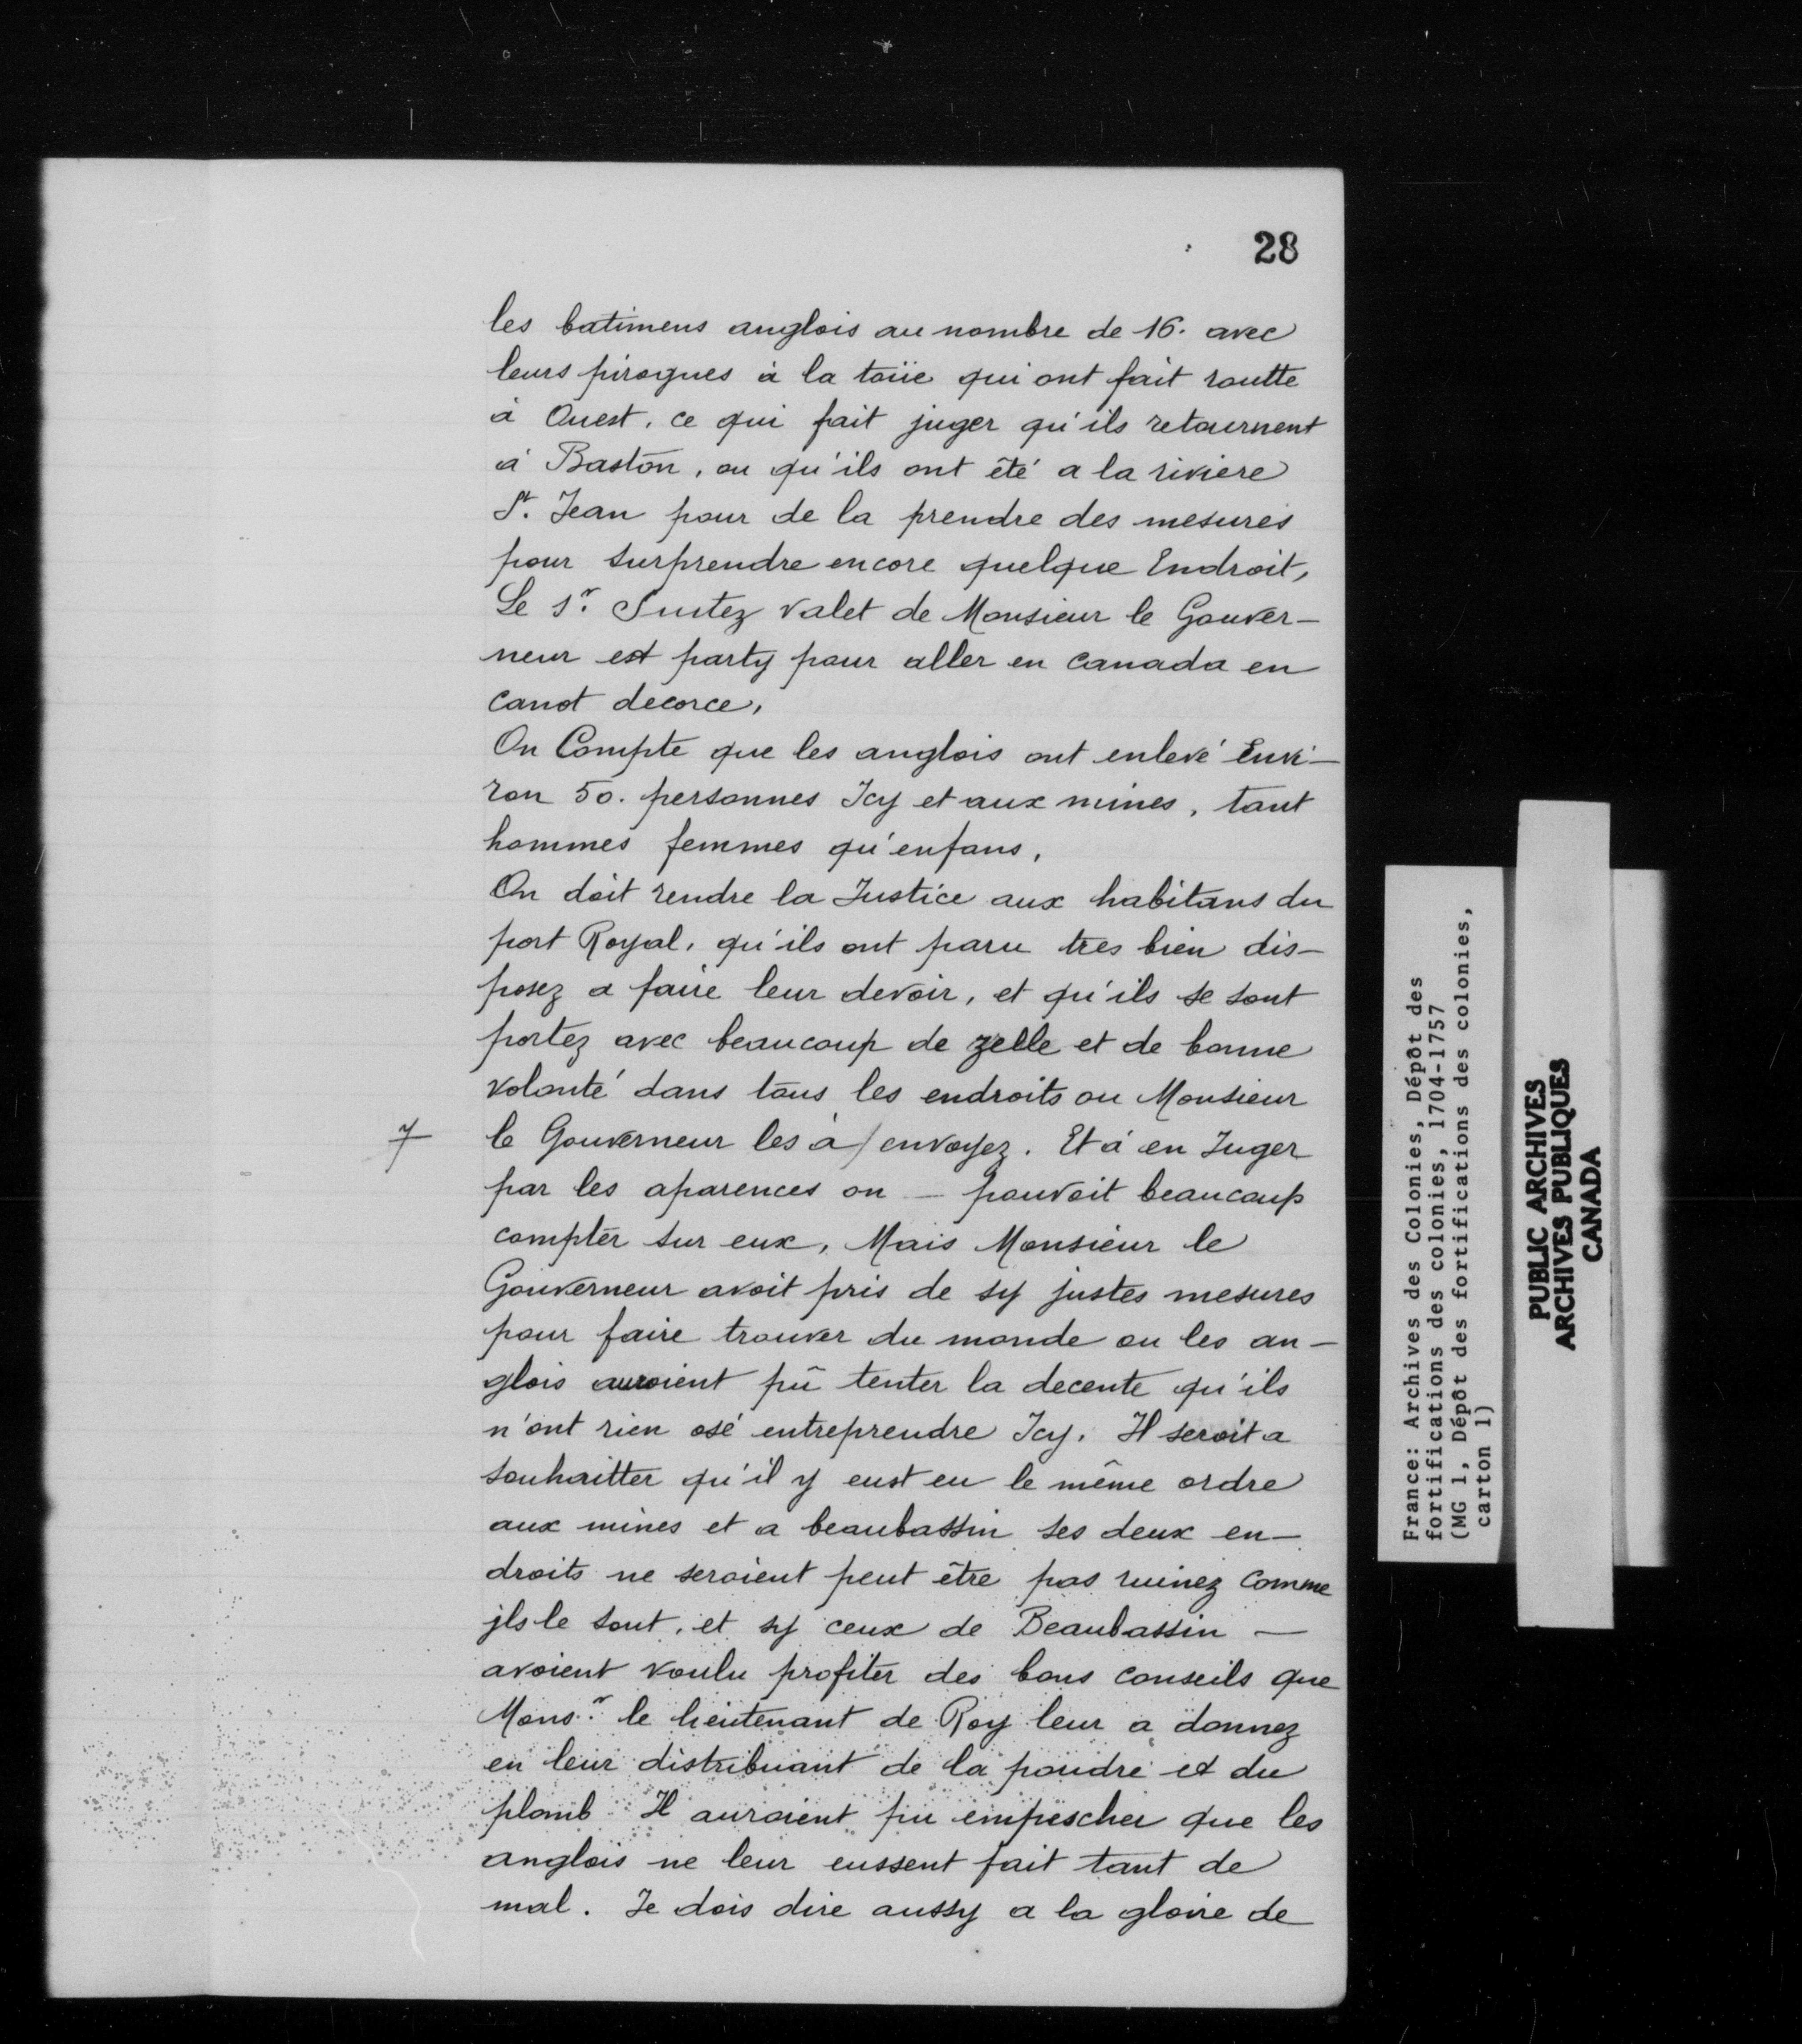 28
les batimens anglois au nombre de 16. avec
leurs pirogues à la toüe qui ont fait routte
à Ouest, ce qui fait juger qu'ils retournent
à Baston, ou qu'ils ont été a la riviere
St. Jean pour de la prendre des mesures
pour surprendre encore quelque Endroit,
Le Sr. valet de Monsieur le Gouver-
neur est party pour aller en Canada en
canot decorce,
On Compte que les anglois ont enlevé Envi-
ron 50. personnes Icy et aux mines, tant
hommes femmes qu'enfans,
On doit rendre la Justice aux habitans du
port Royal, qu'ils ont paru tres bien dis-
posez a faire leur devoir, et qu'ils se sont
portez avec beaucoup de zelle et de bonne
volonté dans tous les endroits ou Monsieur
7 le Gouverneur les à / envoyez. Et à en Juger
par les aparences on — pouvoit beaucoup
compter sur eux, Mais Monsieur le
Gouverneur avoit pris de sy justes mesures
pour faire trouver du monde ou les an-
glois auroient pû tenter la decente qu'ils
n'ont rien osé entreprendre Icy. Il seroit a
souhaitter qu'il y eust eu le même ordre
aux mines et a beaubassin ses deux en-
droits ne seroient peut être pas ruinez comme
jls le sont, et sy ceux de Beaubassin —
avoient voulu profiter des bons conseils que
Monsr. le lieutenant de Roy leur a donnez
en leur distribuant de la poudre et du
plomb Il auroient pu empescher que les
anglois ne leur eussent fait tant de
mal. Je dois dire aussy a la gloire de
France: Archives des Colonies, Dépôt des
fortifications des colonies, 1704-1757
(MG 1, Dépôt des fortifications des colonies,
carton 1)
PUBLIC ARCHIVES
ARCHIVES PUBLIQUES
CANADA